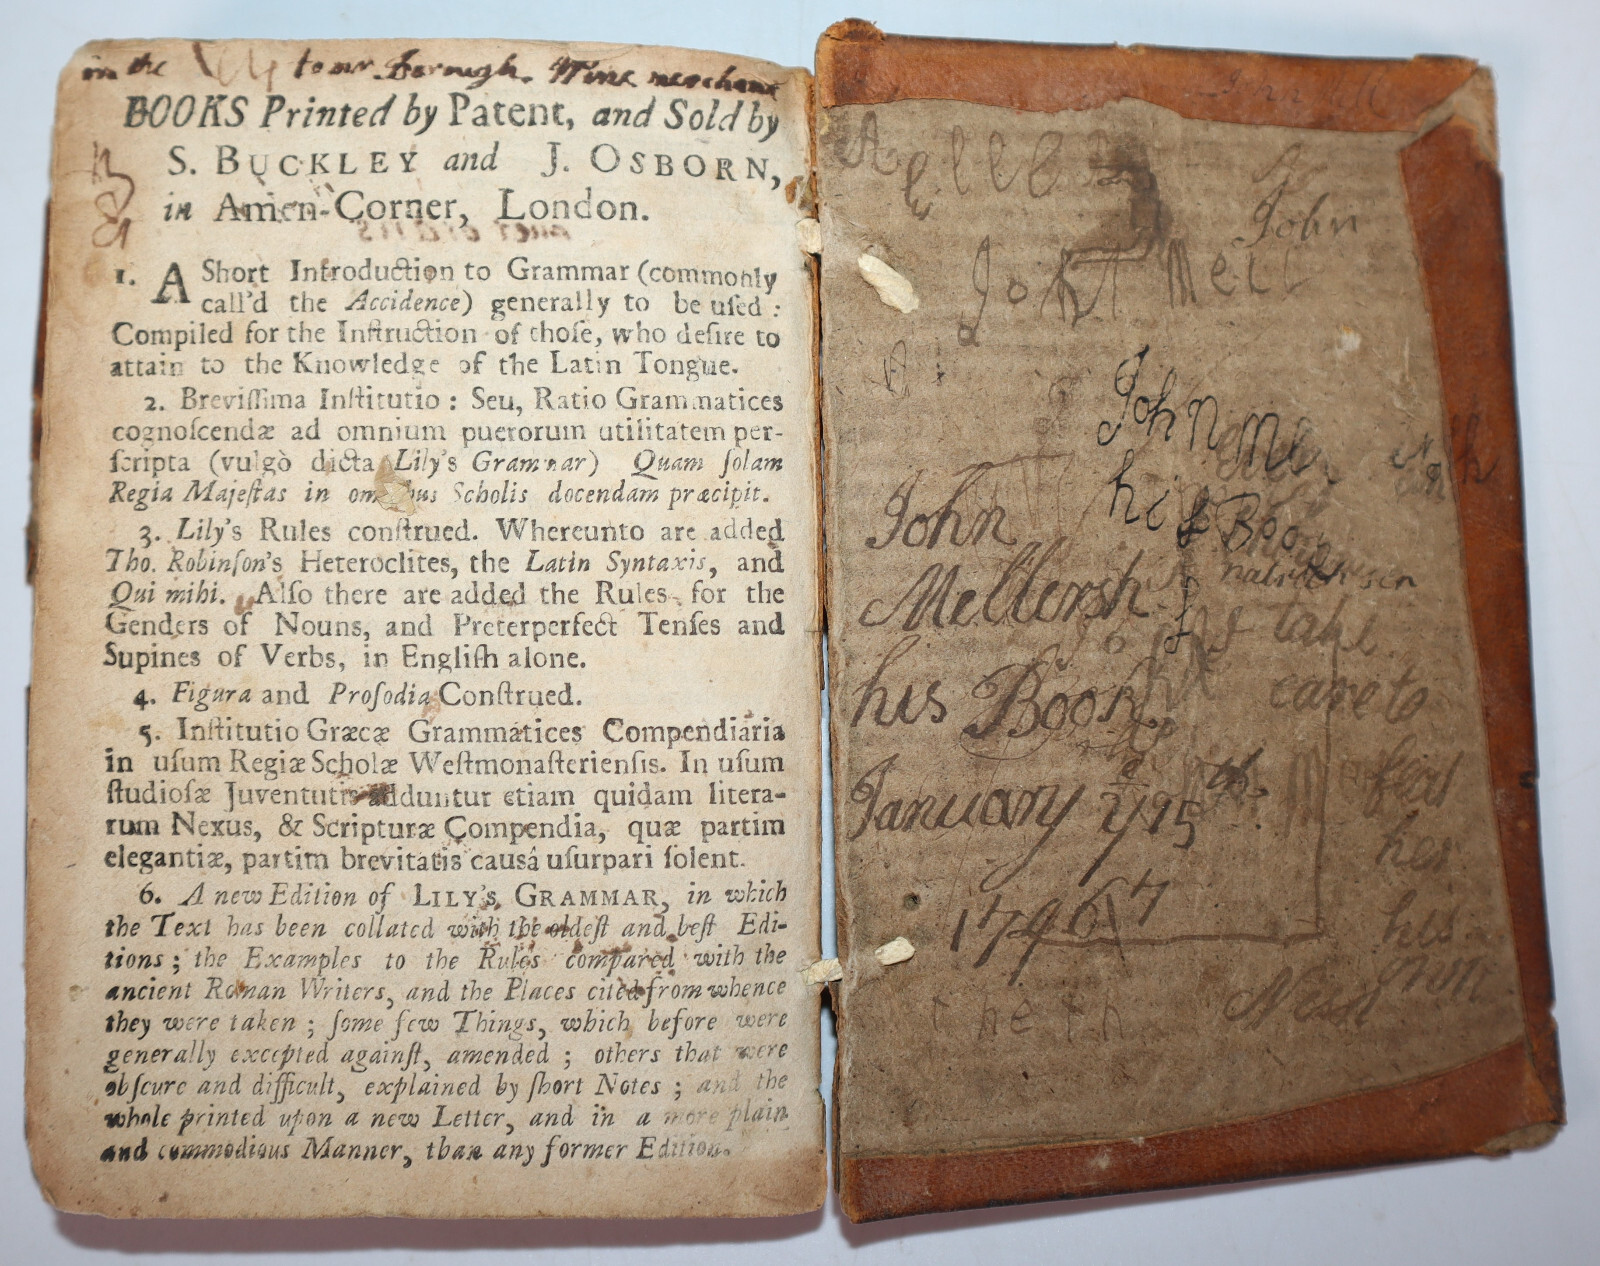 in the to mr Borough. Wine merchant
BOOKS Printed by Patent, and Sold by
S. BUCKLEY and J. OSBORN,
in Amen-Corner, London.
1. A Short Introduction to Grammar (commonly
call'd the Accidence) generally to be uſed :
Compiled for the Inſtruction of thoſe, who deſire to
attain to the Knowledge of the Latin Tongue.
2. Breviſſima Inſtitutio : Seu, Ratio Grammatices
cognoſcendæ ad omnium puerorum utilitatem per-
ſcripta (vulgò dicta Lily's Grammar) Quam ſolam
Regia Majeſtas in omnibus Scholis docendam præcipit.
3. Lily's Rules conſtrued. Whereunto are added
Tho. Robinſon's Heteroclites, the Latin Syntaxis, and
Qui mihi. Alſo there are added the Rules for the
Genders of Nouns, and Preterperfect Tenſes and
Supines of Verbs, in Engliſh alone.
4. Figura and Proſodia Conſtrued.
5. Inſtitutio Græcæ Grammatices Compendiaria
in uſum Regiæ Scholæ Weſtmonaſterienſis. In uſum
ſtudioſæ Juventutis adduntur etiam quidam litera-
rum Nexus, & Scripturæ Compendia, quæ partim
elegantiæ, partim brevitatis cauſâ uſurpari ſolent.
6. A new Edition of LILY'S GRAMMAR, in which
the Text has been collated with the oldeſt and beſt Edi-
tions ; the Examples to the Rules compared with the
ancient Roman Writers, and the Places cited from whence
they were taken ; ſome few Things, which before were
generally excepted againſt, amended ; others that were
obſcure and difficult, explained by ſhort Notes ; and the
whole printed upon a new Letter, and in a more plain
and commodious Manner, than any former Edition.
John
John Mell
John Me
his Book
John
Mellersh
his Book
January 15
1746 7
take
care to
her
his
own